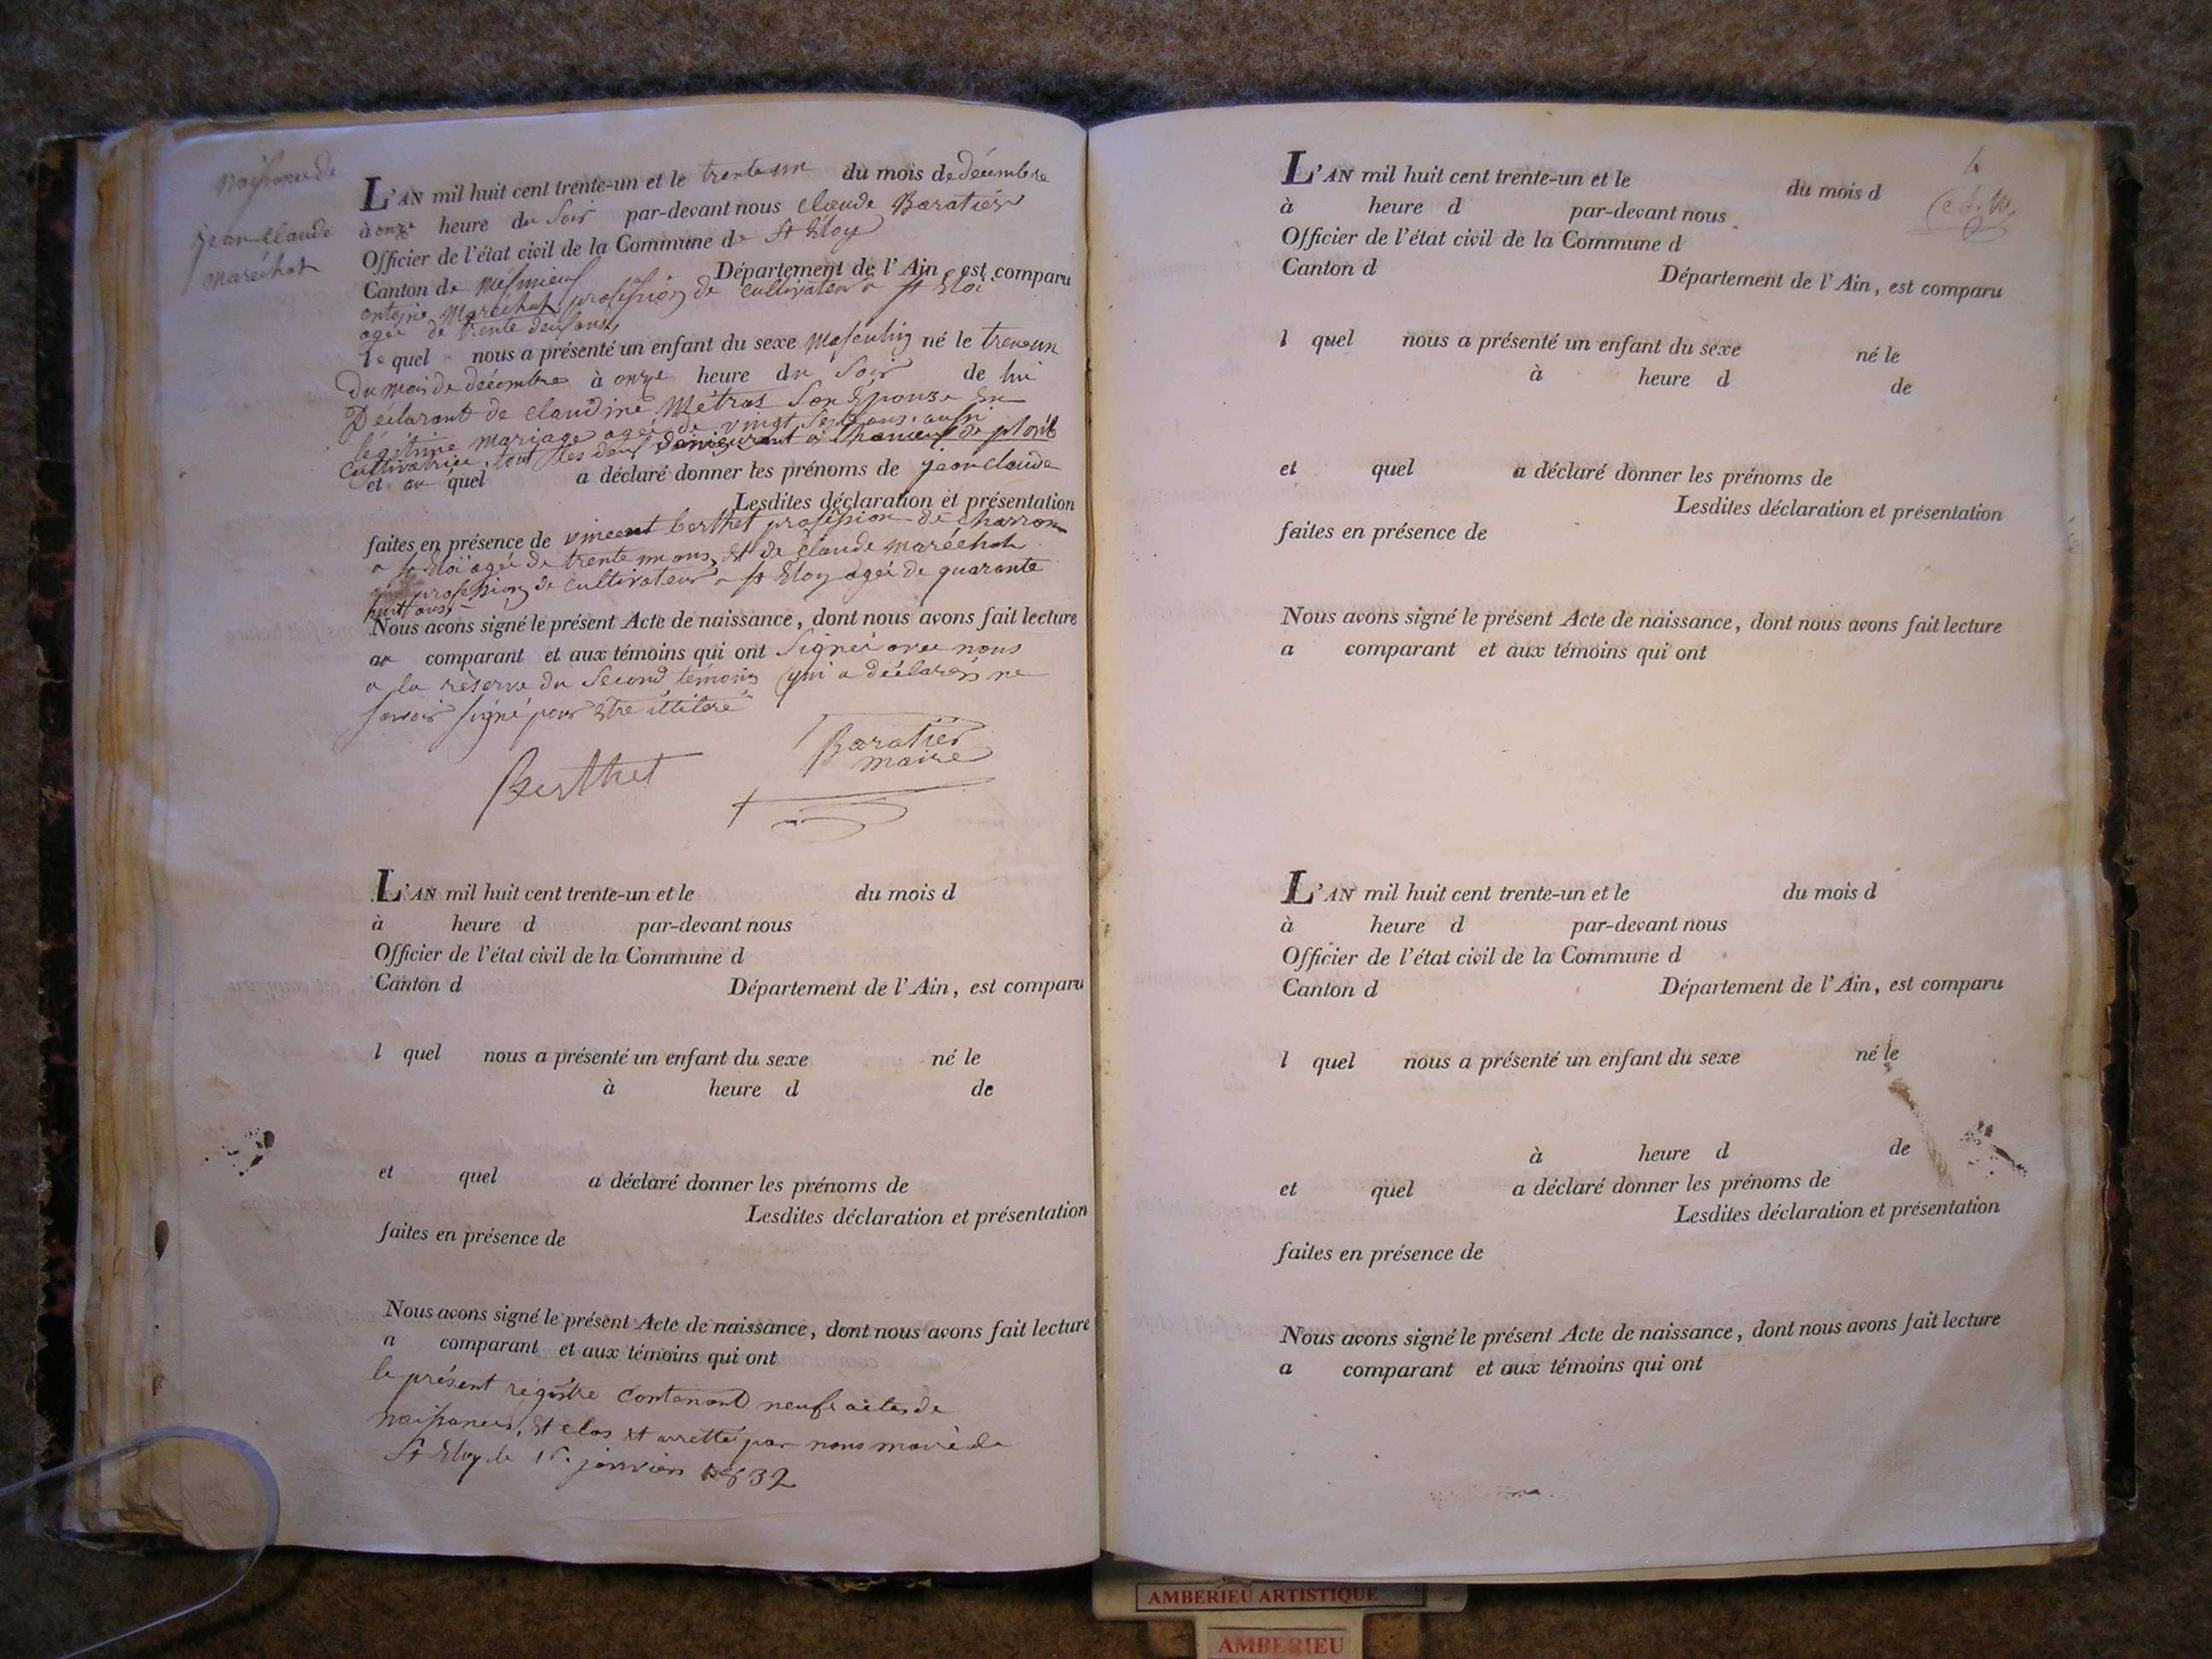 naissance de
jean Claude
maréchal
L'AN mil huit cent trente-un et le trente un du mois de décembre
à onze heure du soir par-devant nous claude Baratier
Officier de l'état civil de la Commune de St Eloy
Canton de Mésmieux Département de l'Ain, est comparu
antoine Maréchal profession de cultivateur a St Eloi
agée de trente deux ans
le quel nous a présenté un enfant du sexe masculin né le trente un
du mois de décembre à onze heure du soir de lui
Déclarant de claudine Métras son Epouse En
légitime mariage agée de vingt sept ans, aussi
cultivatrice, tout les deux
et au quel a déclaré donner les prénoms de jean claude
Lesdites déclaration et présentation
faites en présence de vincent berthet profession de charron
a St Eloi agée de trente un ans, Et de Claude maréchal
profession de cultivateur a St Eloy agée de quarante
huit ans
Nous avons signé le présent Acte de naissance, dont nous avons fait lecture
au comparant et aux témoins qui ont signés avec nous
a la réserve du second témoins qui a déclarés ne
savoir signé pour Etre illiteré
Berthet
Baratier
maire
L'AN mil huit cent trente-un et le du mois d
à heure d par-devant nous
Officier de l'état civil de la Commune d
Canton d Département de l'Ain, est comparu
l quel nous a présenté un enfant du sexe né le
à heure d de
et quel a déclaré donner les prénoms de
Lesdites déclaration et présentation
faites en présence de
Nous avons signé le présent Acte de naissance, dont nous avons fait lecture
a comparant et aux témoins qui ont
le présent régistre contenant neuf actes de
naissances, Et clos et arretté par nous maire de
St Eloy le janvier 1832
L'AN mil huit cent trente-un et le du mois d
à heure d par-devant nous
Officier de l'état civil de la Commune d
Canton d Département de l'Ain, est comparu
l quel nous a présenté un enfant du sexe né le
à heure d de
et quel a déclaré donner les prénoms de
Lesdites déclaration et présentation
faites en présence de
Nous avons signé le présent Acte de naissance, dont nous avons fait lecture
a comparant et aux témoins qui ont
L'AN mil huit cent trente-un et le du mois d
à heure d par-devant nous
Officier de l'état civil de la Commune d
Canton d Département de l'Ain, est comparu
l quel nous a présenté un enfant du sexe né le
à heure d de
et quel a déclaré donner les prénoms de
Lesdites déclaration et présentation
faites en présence de
Nous avons signé le présent Acte de naissance, dont nous avons fait lecture
a comparant et aux témoins qui ont
AMBERIEU ARTISTIQUE
AMBERIEU